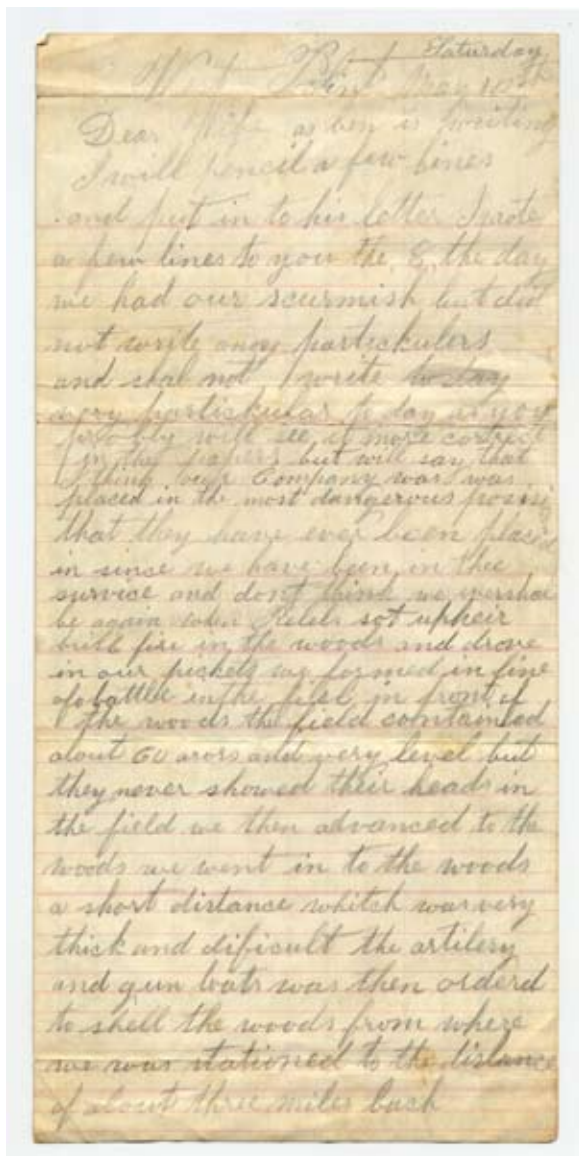 Saturday
West Point May 10th
Dear Wife as ben is writing
I will pencil a few lines
and put in to his letter I rote
a few lines to you the 8, the day
we had our scurmish but did
not write any partickulers
and shal not write to day
very partickular to day as you
probly will see it more correct
in the papers but will say that
I think our Company was was
placed in the most dangerous
that they have ever been placed
in since we have been in the
survice and dont think we
be again when Rebels sot up their
fire in the woods and drove
in our pickets we formed in line
of battle in the in front of
the woods the field containted
about 60 acors and very level but
they never showed their heads in
the field we then advanced to the
woods we went in to the woods
a short distance whitch was very
thick and dificult the artilery
and gun boats was then orderd
to shell the woods from where
we was stationed to the distance
of about three miles back